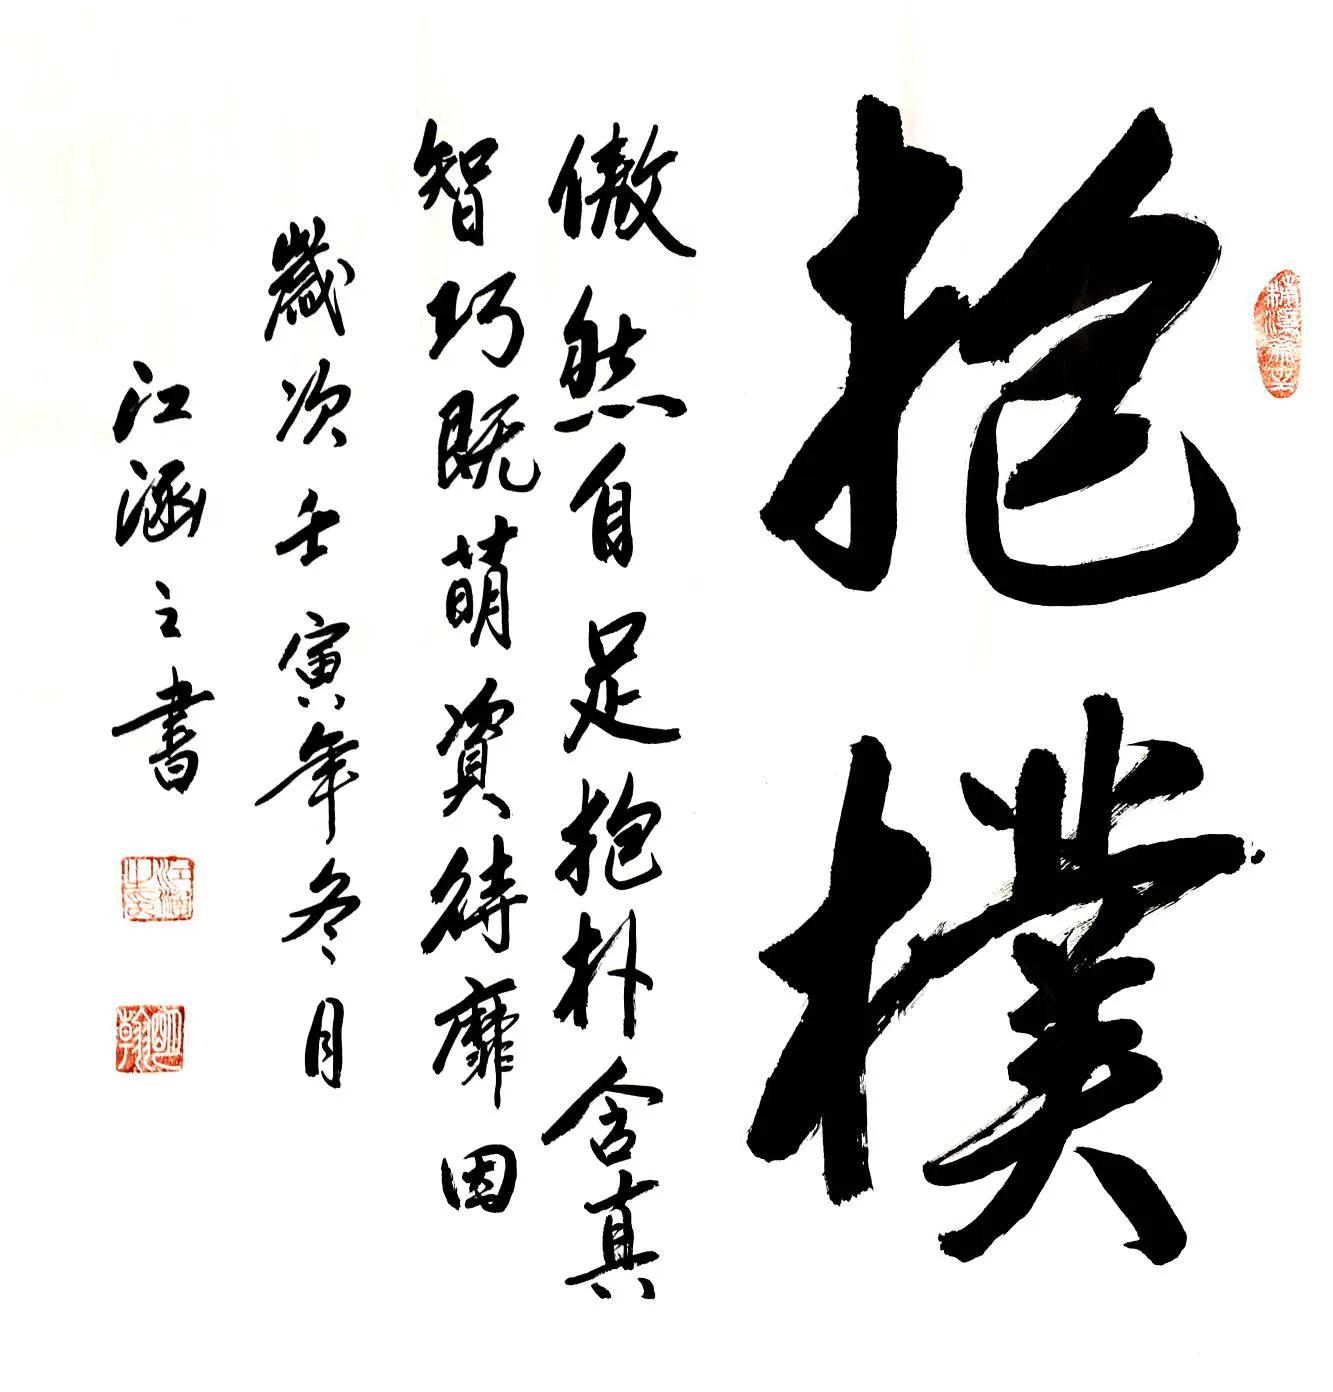 抱樸
傲然自足抱朴含真
智巧既萌資待靡因
歲次壬寅年冬月
江涵之書